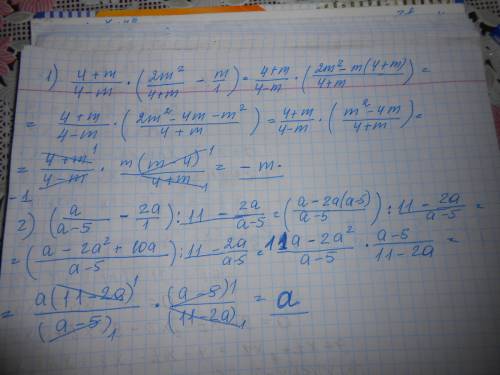 1) (4+m)/(4-m) · (2m²/(4+m) - m/1) = (4+m)/(4-m) · ((2m²-m(4+m))/(4+m)) =
= (4+m)/(4-m) · ((2m²-4m-m²)/(4+m)) = (4+m)/(4-m) · ((m²-4m)/(4+m)) =
= (4+m)¹/(4-m)₋₁ · m(m-4)¹/(4+m)₁ = -m.
2) (a/(a-5) - 2a/1) : (11-2a)/(a-5) = ((a-2a(a-5))/(a-5)) : (11-2a)/(a-5) =
= ((a-2a²+10a)/(a-5)) : (11-2a)/(a-5) = (11a-2a²)/(a-5) · (a-5)/(11-2a) =
= a(11-2a)¹/(a-5)₁ · (a-5)¹/(11-2a)₁ = a